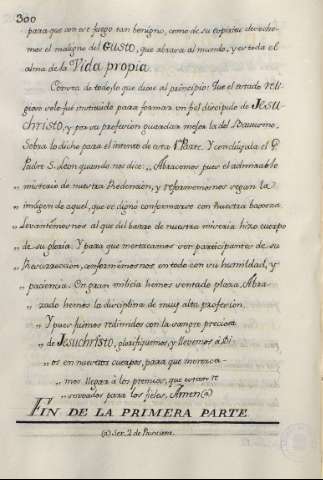 300
para que con ese fuego tan benigno, como de su espiritu, derechemos
mos el maligno del GUSTO, que abrasa al mundo, y es toda el
alma de la Vida propia.
Consta de todo lo que dixe al principio: Que el estado religioso
gioso solo fué instituido para formar un fiel discipulo de Jesu-
christo, y por su profesion guardar mejor la del Bautismo.
Sobra lo dicho para el intento de esta 1ª Parte. Y concluyala el G.
Padre S. Leon quando nos dice: „Abracemos, pues el admirable
„ misterio de nuestra Redencion, y reformemonos segun la
„ imágen de aquel, que se dignó conformarse con nuestra baxeza.
„ Levantémonos al que del barro de nuestra miseria hizo cuerpo
„ de su gloria. Y para que merezcamos ser participantes de su
„ Resurreccion, conformémonos en todo con su humildad, y
„ paciencia. En gran milicia hemos sentado plaza. Abra-
„ zado hemos la disciplina de muy alta profesion.
„ Y pues fuimos redimidos con la sangre preciosa
„ de Jesuchristo, glorifiquemos y llevemos á Di-
„ os en nuestros cuerpos, para que merezca-
„ mos llegar á los premios, que estan re
„ servados para los fieles, Amen (a)
FIN DE LA PRIMERA PARTE.
(a) Ser. 2 de